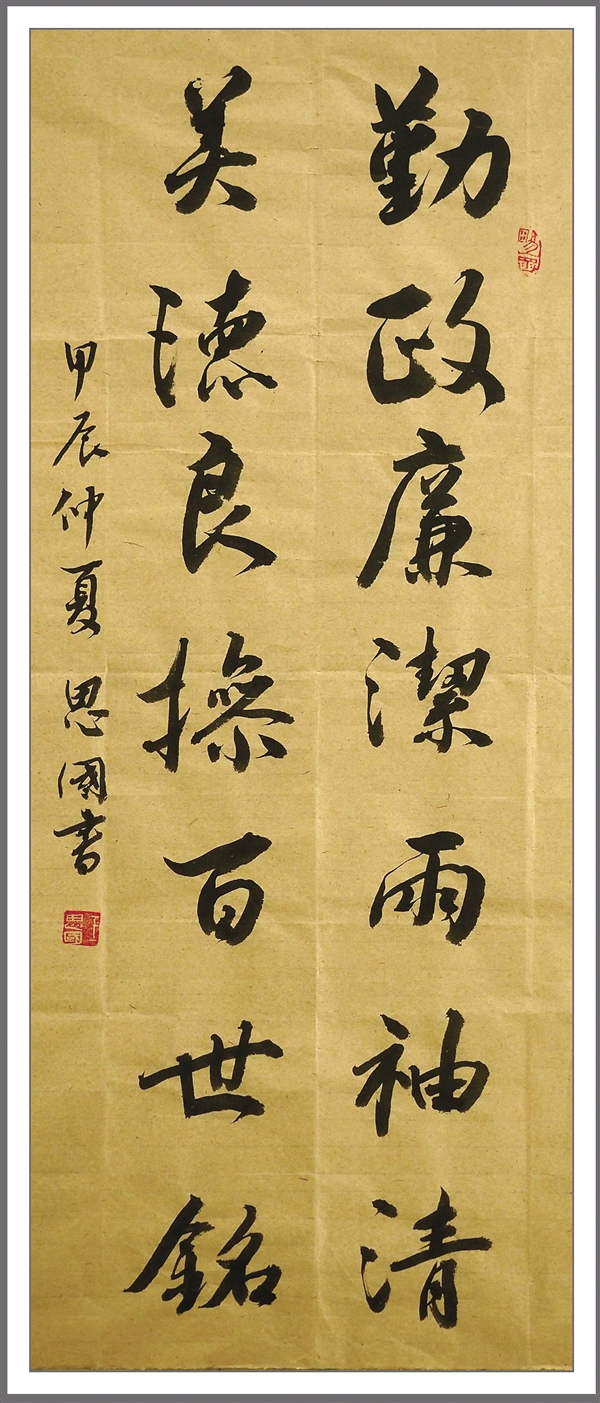 勤政廉潔兩袖清
美德良操百世銘
甲辰仲夏思國書